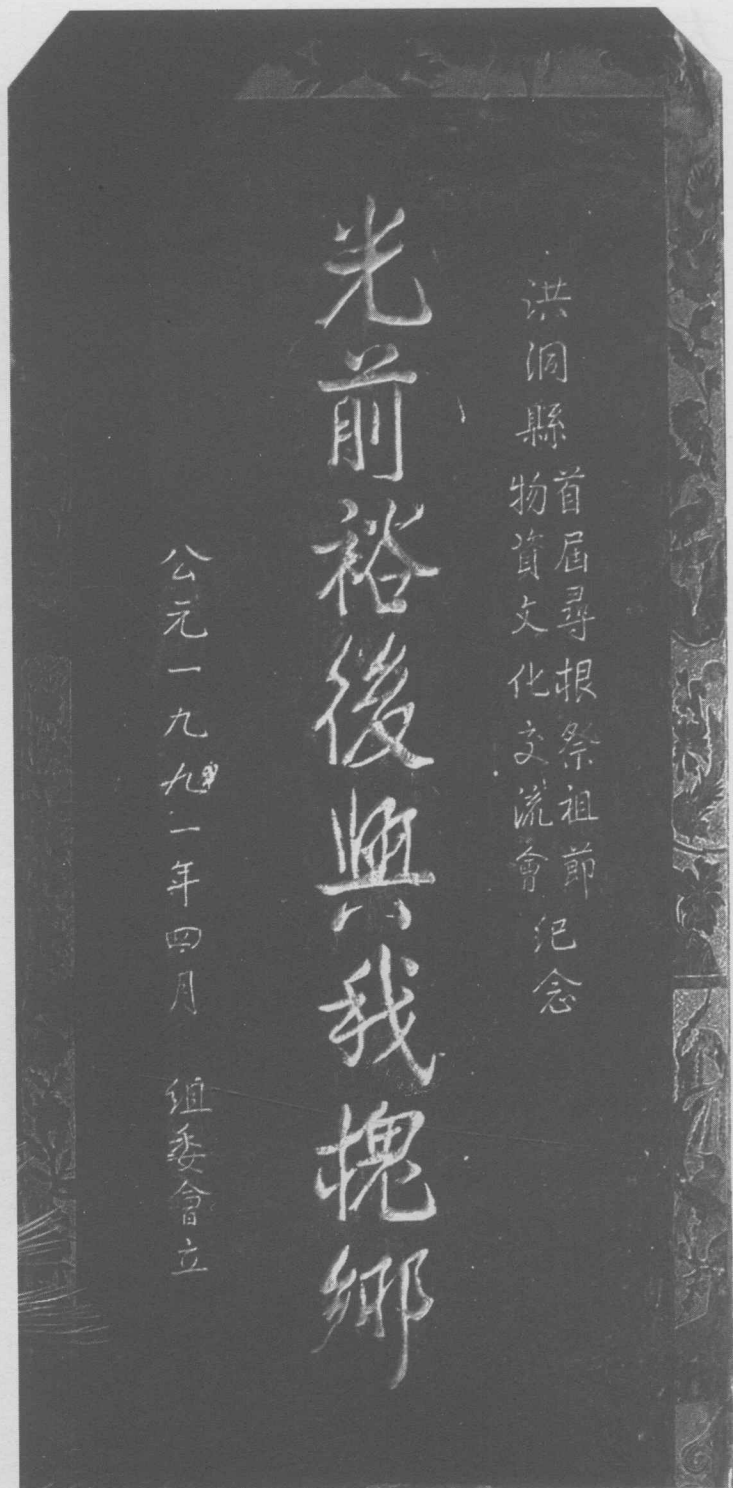 洪洞縣首屆尋根祭祖節物資文化交流會紀念
光前裕後興我槐鄉
公元一九九一年四月 組委會立